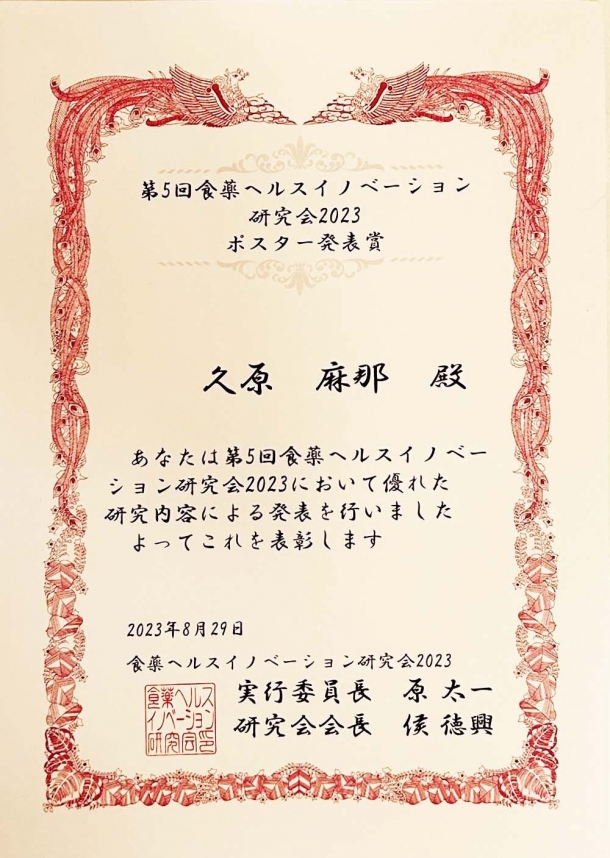 第5回食薬ヘルスイノベーション
研究会2023
ポスター発表賞
久原　麻那　殿
あなたは第5回食薬ヘルスイノベー
ション研究会2023において優れた
研究内容による発表を行いました
よってこれを表彰します
2023年8月29日
食薬ヘルスイノベーション研究会2023
実行委員長　原 太一
研究会会長　侯 徳興
食薬ヘルス
イノベーション
研究会印